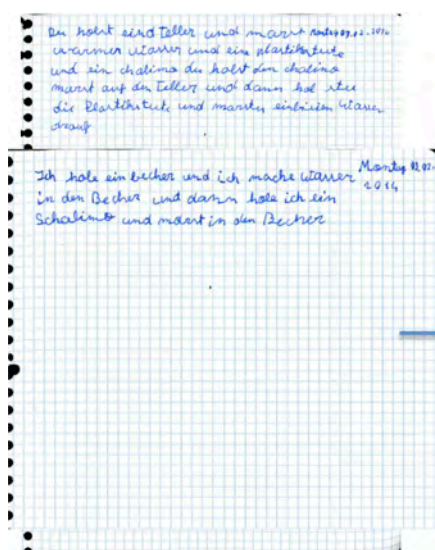 Du holst eind Teller und marst montag 03.02.2014
warmer wasser und ein plastiktute
und ein chalimo du holst den chalimo
marst auf den Teller und dann hol stu
die Plastiktute und marstu einbisien wasser
drauf
Ich hole ein becher und ich mache wasser Montag
in den Becher und dann hole ich ein 2014
Schalimo und marst in den Becher